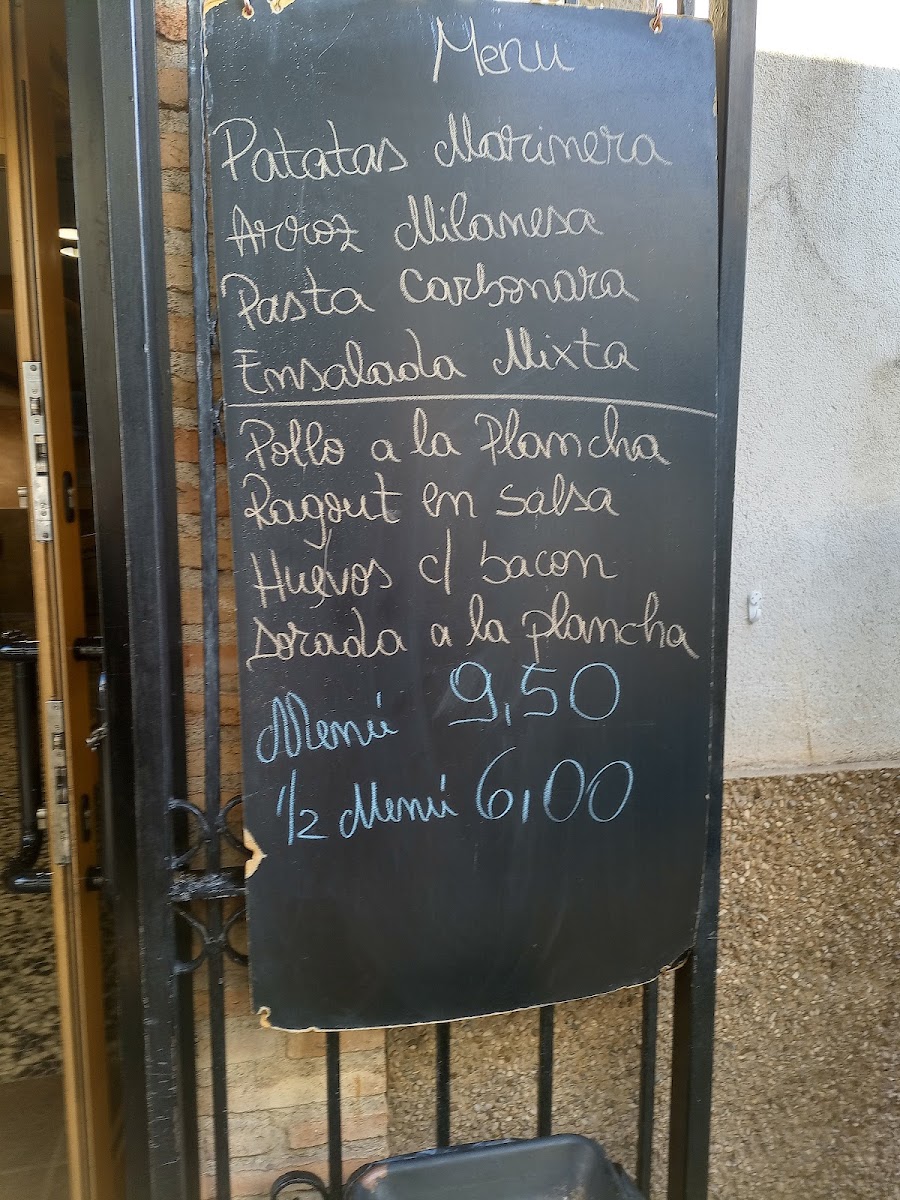 Menu
Patatas Marinera
Arroz Milanesa
Pasta Carbonara
Ensalada Mixta
Pollo a la Plancha
Ragout en salsa
Huevos c/ bacon
Dorada a la plancha
Menú 9,50
1/2 Menú 6,00